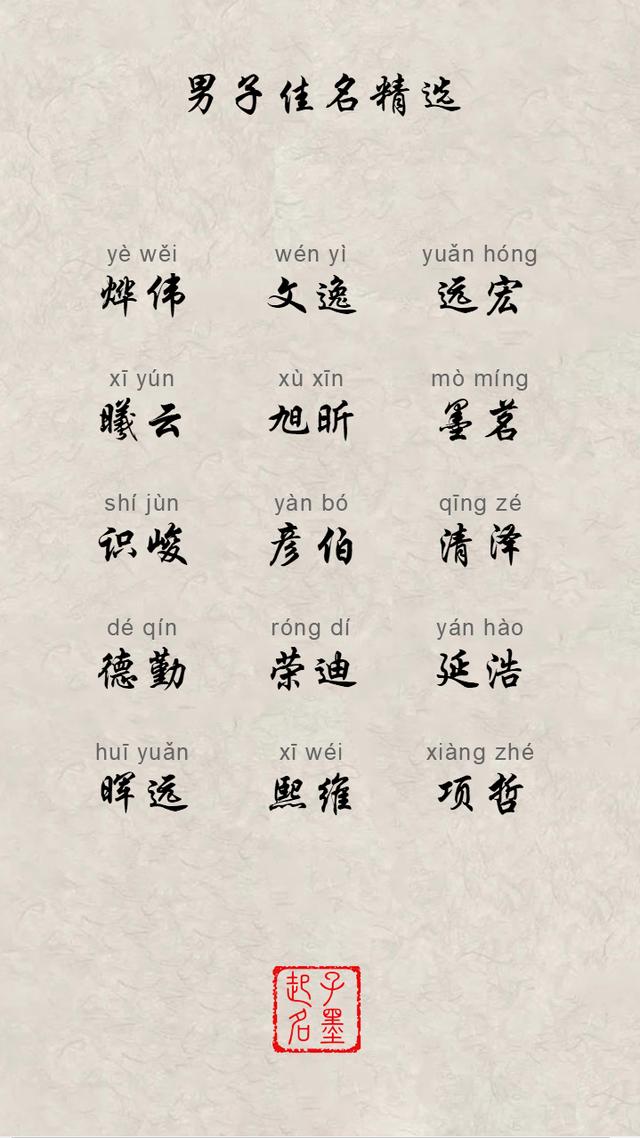 男子佳名精选
yè wěi wén yì yuǎn hóng
烨伟 文逸 远宏
xī yún xù xīn mò míng
曦云 旭昕 墨茗
shí jùn yàn bó qīng zé
识峻 彦伯 清泽
dé qín róng dí yán hào
德勤 荣迪 延浩
huī yuǎn xī wéi xiàng zhé
晖远 熙维 项哲
子墨
起名